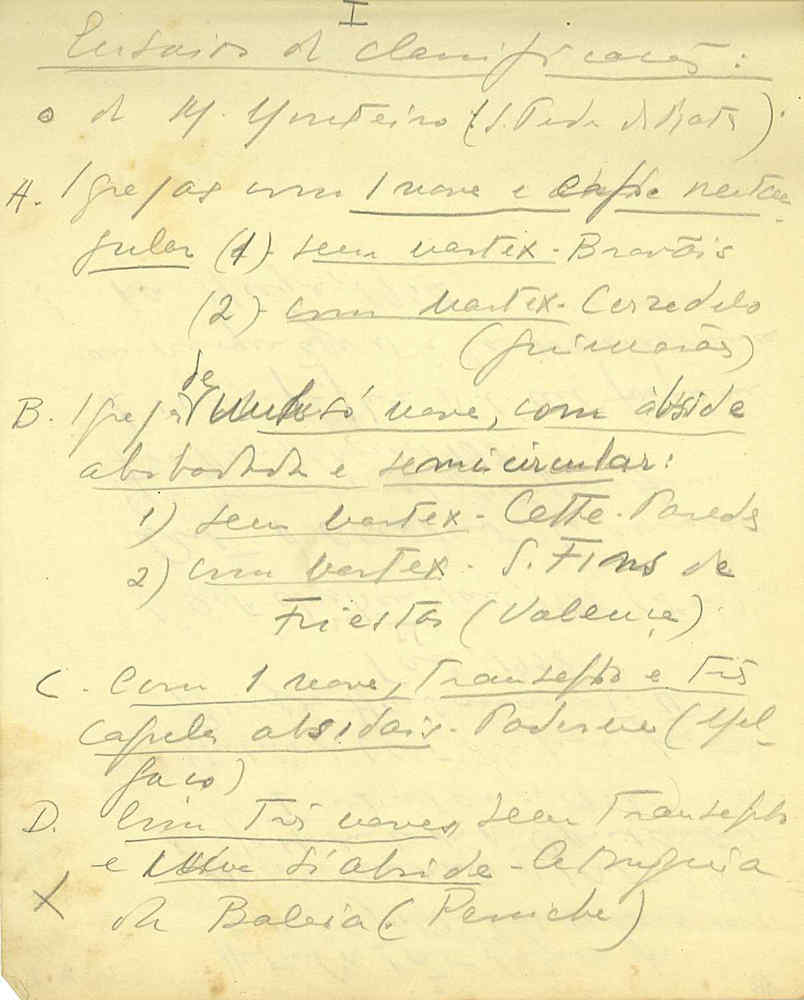 I
Ensaios de classificação:
o de M. Monteiro (S. Pedro de Rates)
A. Igrejas com 1 nave e capela rectan-
gular (1) - sem nartex - Bravães
(2) - com nartex - Cerzedelo
(Guimarães)
de
B. Igrejas só nave, com ábside
abobadada e semicircular:
1) sem nartex - Cette - Paredes
2) com nartex - S. Fins de
Friestas (Valença)
C. Com 1 nave, transepto e três
capelas absidais - Paderne (Mel-
gaço)
D. Com três naves, sem transepto
e só abside - Atouguia
da Baleia (Peniche)
X